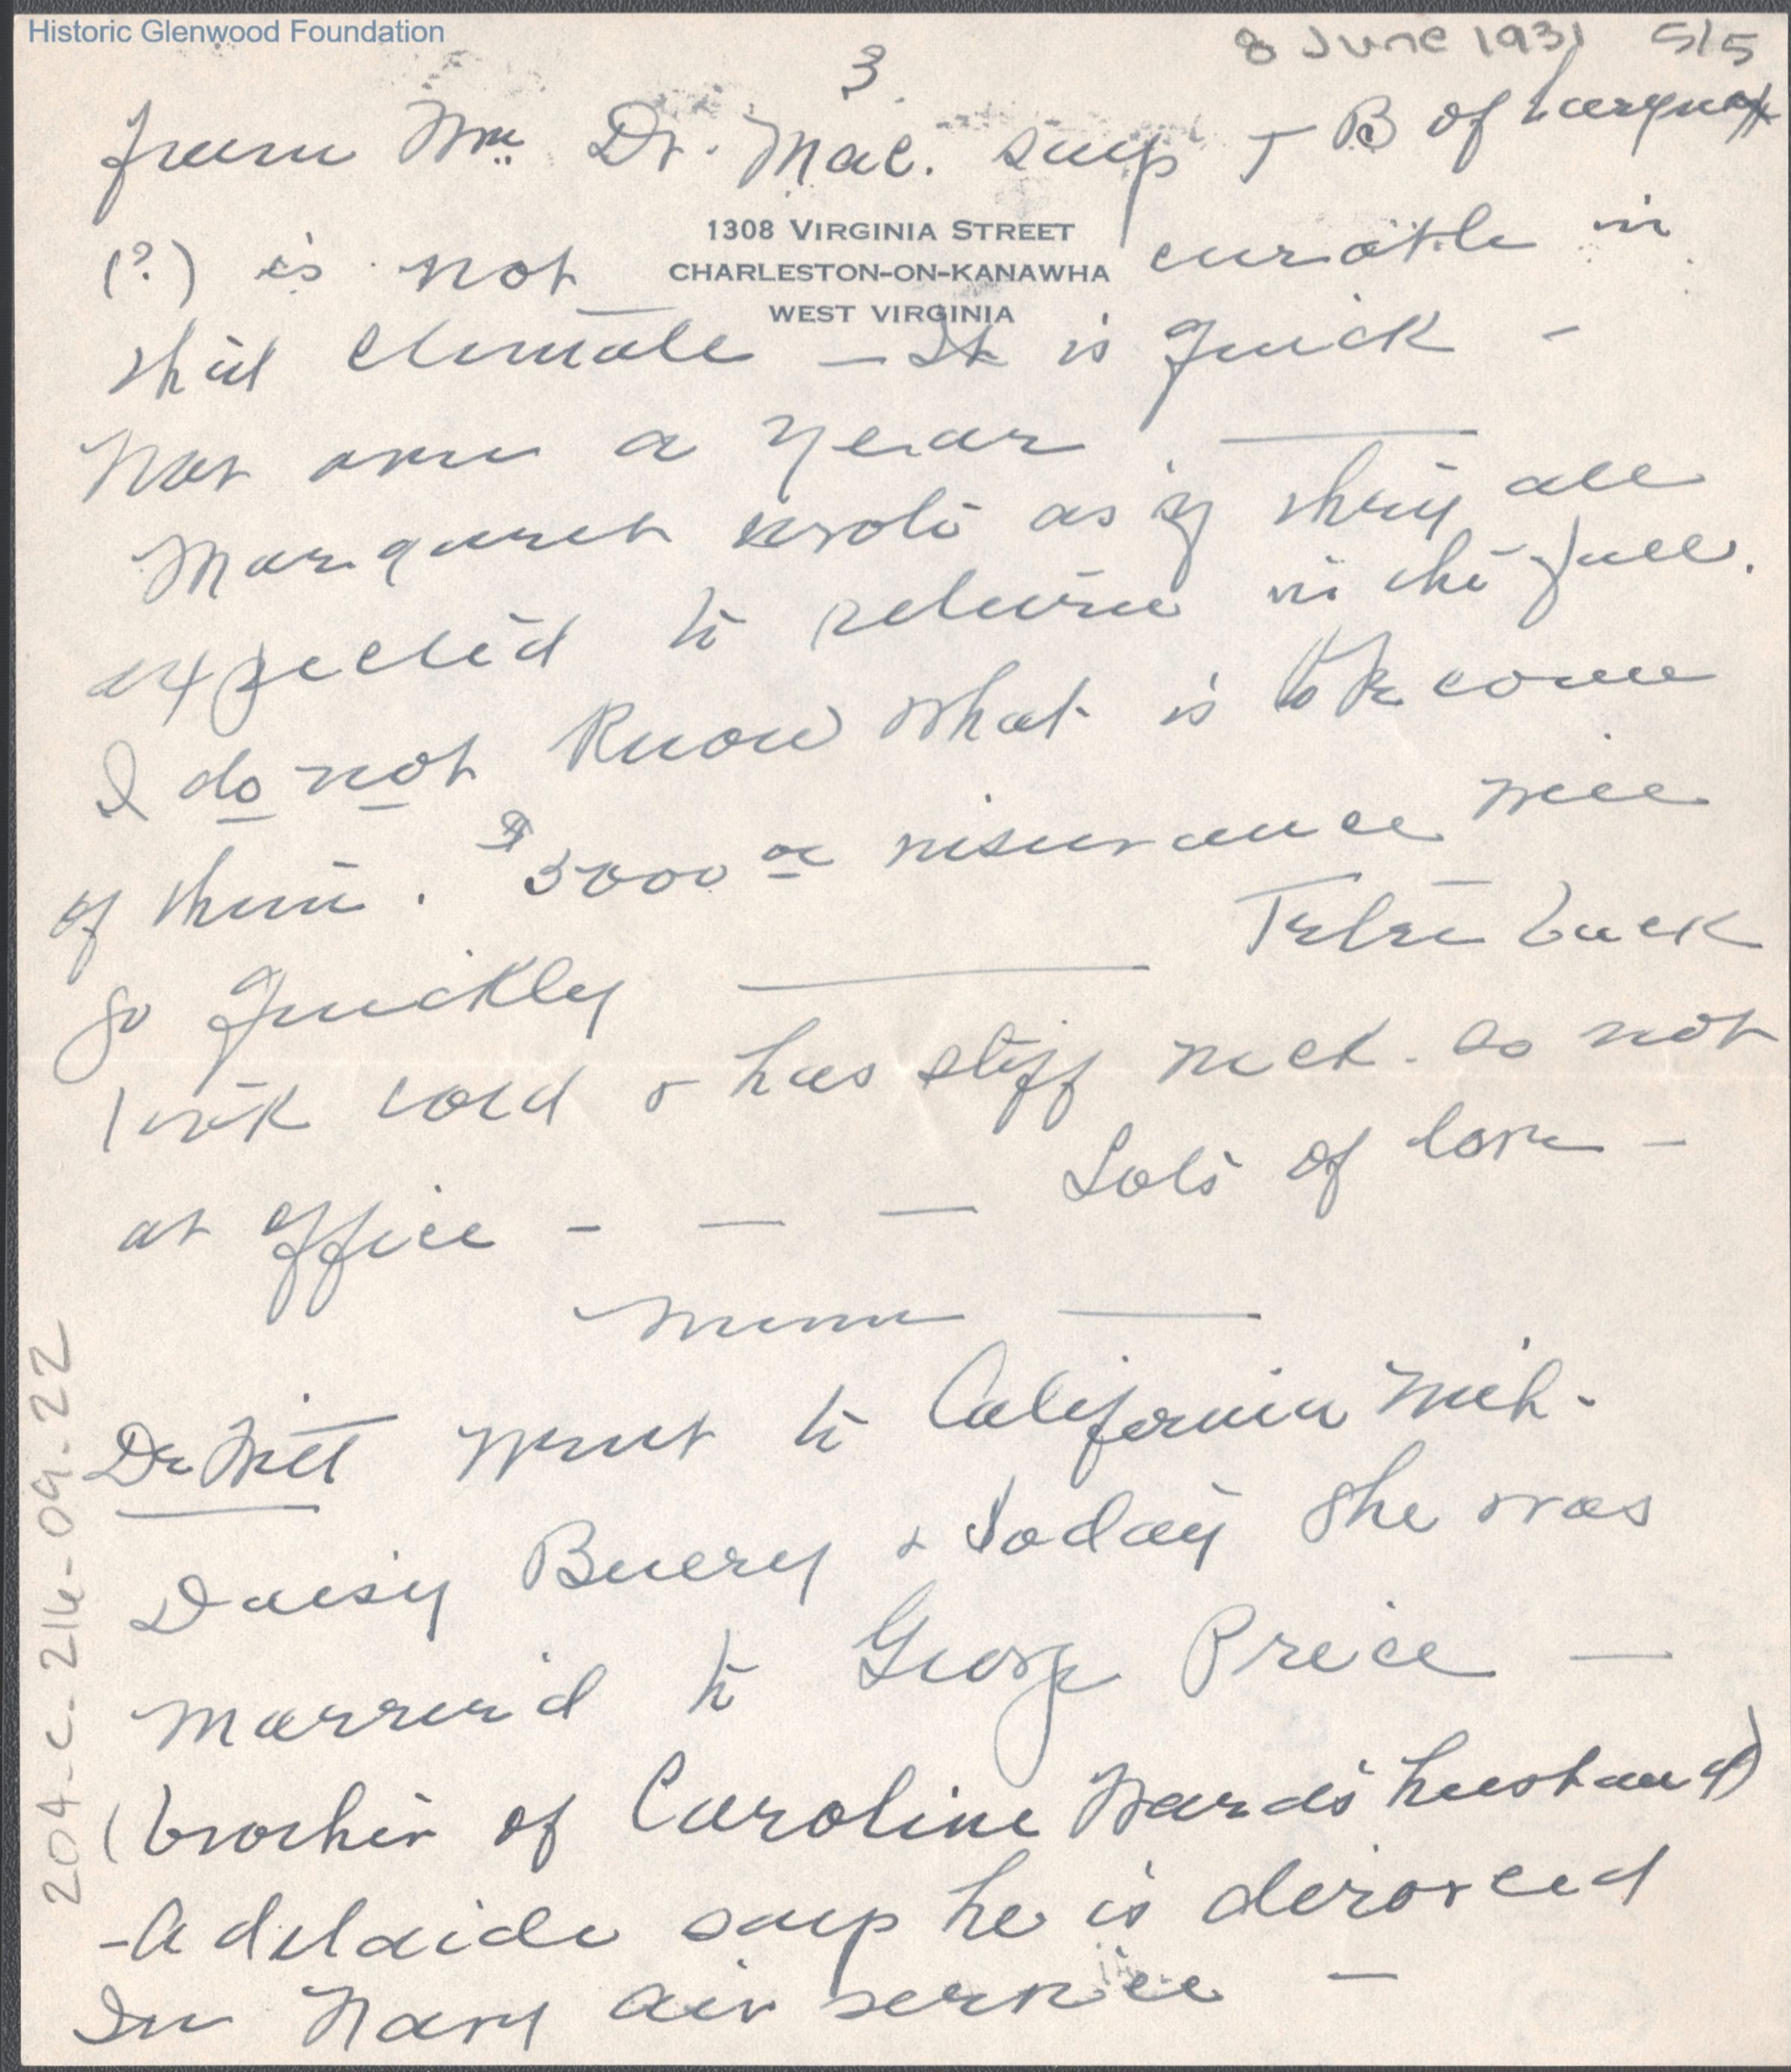 Historic Glenwood Foundation
8 June 1931 5/5
3
from Wm Dr. Mac. says T B of larynx
(?) is not curable in
1308 VIRGINIA STREET
CHARLESTON-ON-KANAWHA
WEST VIRGINIA
this climate - It is quick -
not over a year.
Margaret wrote as if they all
expected to return in the fall.
I do not know what is to become
of them. $5000 insurance will
go quickly
back
took cold & has stiff neck. So not
at office - - - Lots of love -
went to California with
Daisy & today she was
married to George Price -
(brother of Caroline Ward's husband)
- Adelaide says he is divorced
In Navy air service -
204-C-216-09.22